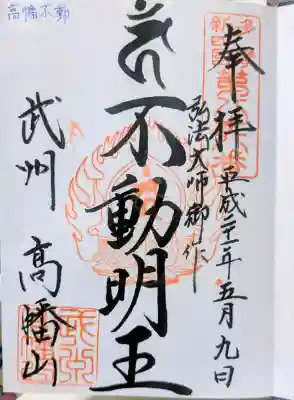 高幡不動
奉拝
平成二十二年五月九日
弘法大師御作
不動明王
武州 高幡山